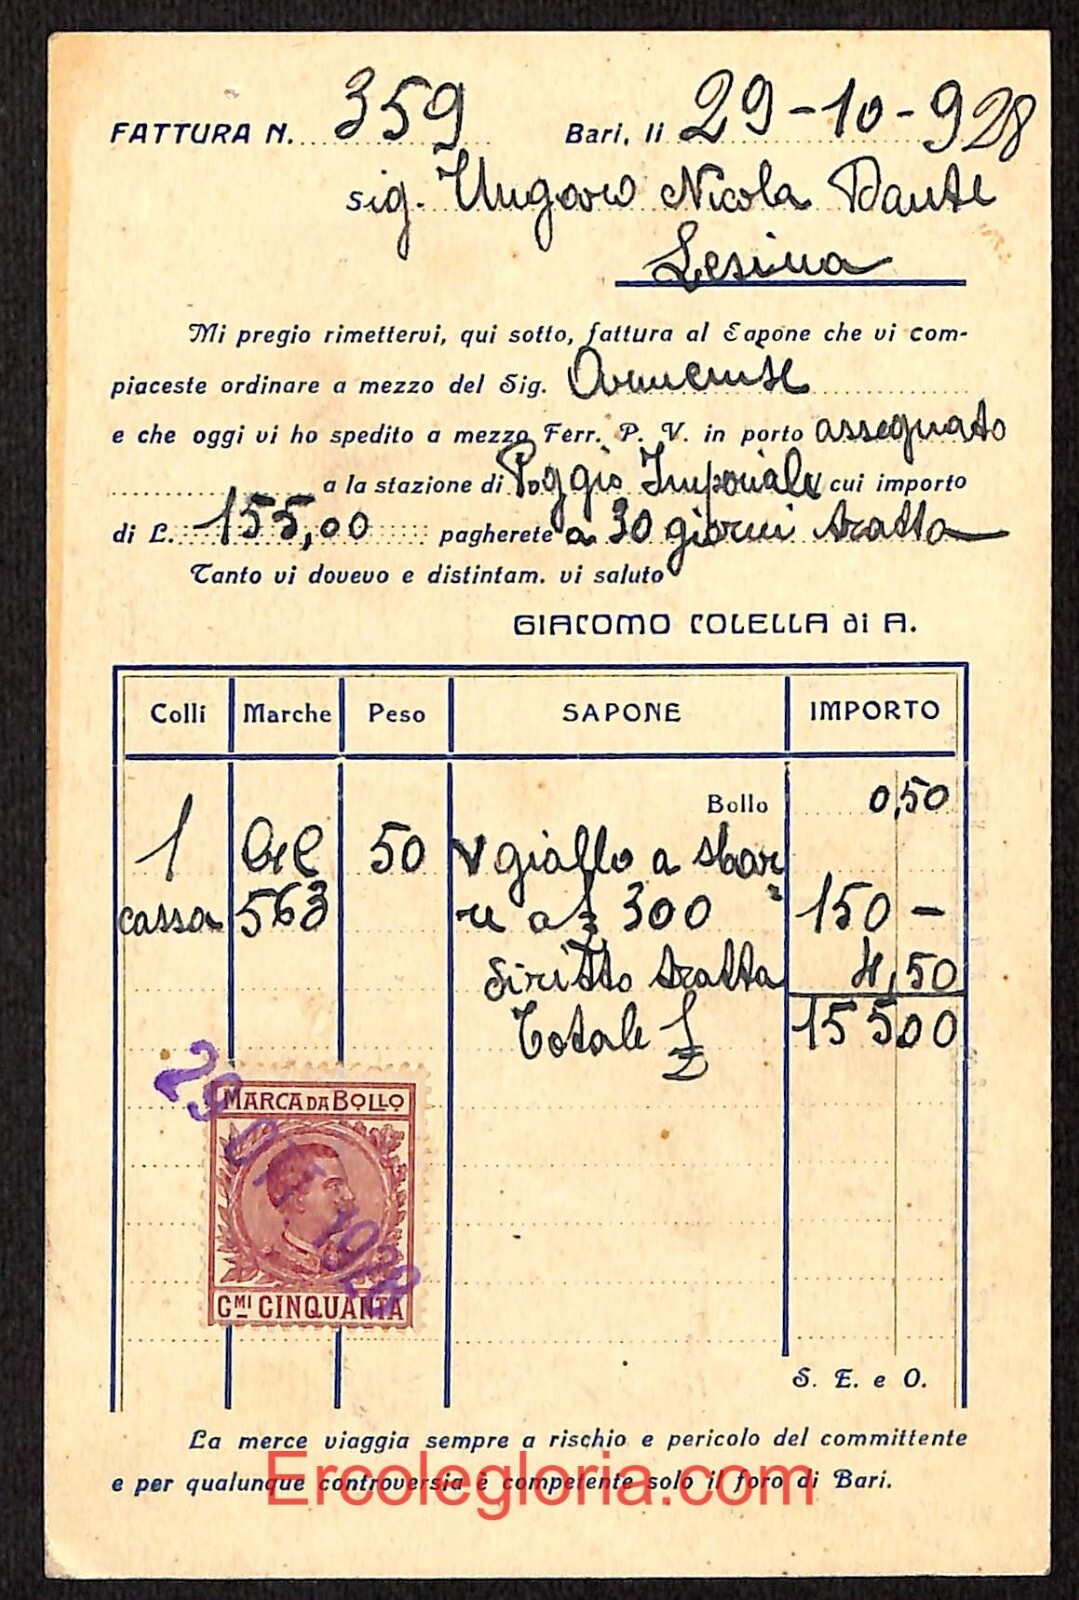 FATTURA N. 359 Bari, li 29-10-928
sig. Ungaro Nicola Dante
Lesina
Mi pregio rimettervi, qui sotto, fattura al Sapone che vi com-
piaceste ordinare a mezzo del Sig.
e che oggi vi ho spedito a mezzo Ferr. P. V. in porto assegnato
a la stazione di Poggio Imperiale cui importo
di L. 155,00 pagherete a 30 giorni tratta
Tanto vi dovevo e distintam. vi saluto
GIACOMO COLELLA di A.
Colli Marche Peso SAPONE IMPORTO
Bollo 0,50
1 50 giallo a sbar
cassa 563 re a £ 300 150 -
diritto tratta 4,50
Totale £ 155,00
29 OTT 1928
MARCA DA BOLLO
CMI CINQUANTA
S. E. e O.
La merce viaggia sempre a rischio e pericolo del committente
e per qualunque controversia è competente solo il foro di Bari.
Ercolegloria.com